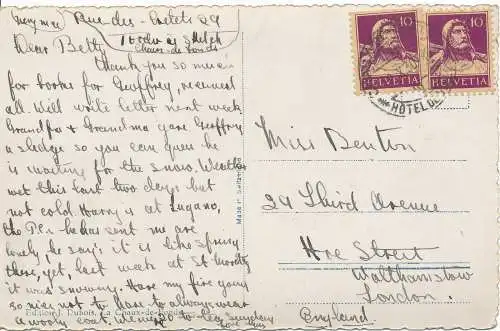 Rue des Cretets 29
Chaux-de-Fonds
Dear Betty
Thank you so much
for books for Geoffrey, received
all. Will write letter next week.
Grandpa & Grandma gave Geoffrey
a sledge so you can guess he
is waiting for the snow. Weather
wet this last two days but
not cold. Harry is at Lugano,
the P.C. he has sent me are
lovely, he say's it is like Spring
there, yet, last week at St Moritz
it was snowing. Have my fire going
so nice not to have to always wear
a wooly coat. Were to tea Sunday
Edition J. Dubois, La Chaux-de-Fonds
Made in Switzerland
10 10
HELVETIA HELVETIA
HOTEL DE
Miss Benton
29 Third Avenue
Hoe Street
Walthamstow
London.
England.